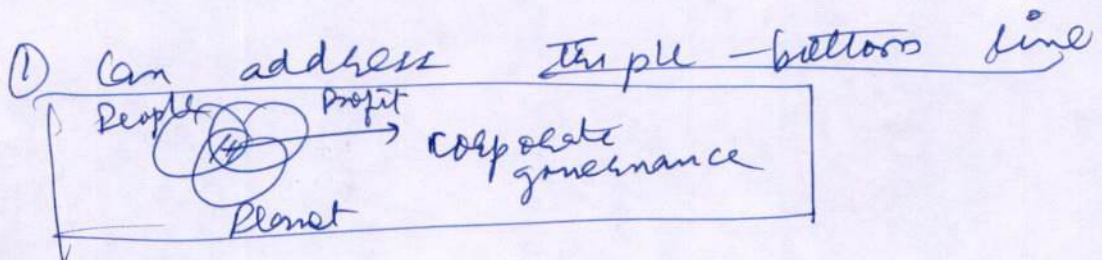 ① Can address Triple-bottom line
People Profit
corporate
governance
Planet